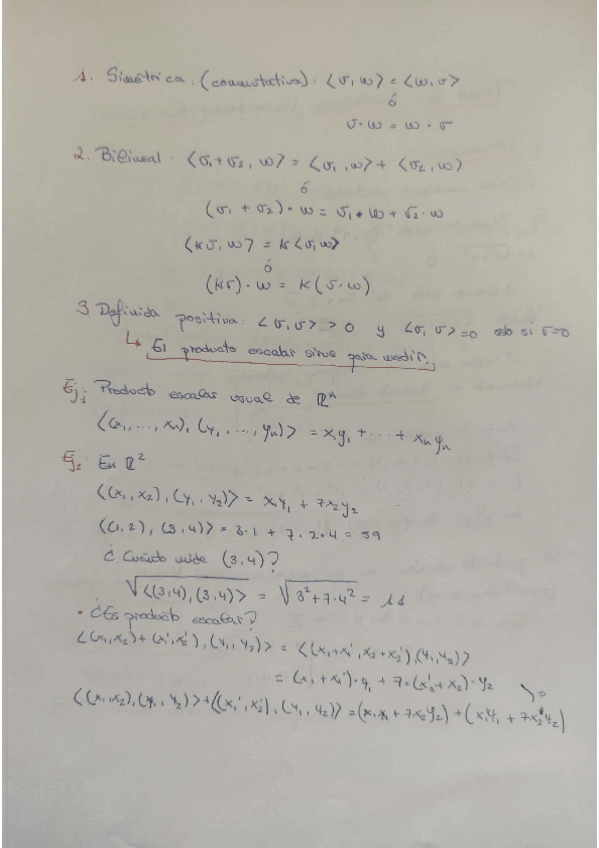 1. Simétrica: (conmutativa): <v, w> = <w, v>
ó
v · w = w · v
2. Bilineal: <v₁+v₂, w> = <v₁, w> + <v₂, w>
ó
(v₁ + v₂) · w = v₁ · w + v₂ · w
<kv, w> = k<v, w>
ó
(kv) · w = k(v · w)
3 Definida positiva: <v, v> > 0 y <v, v> = 0 solo si v=0
↳ El producto escalar sirve para medir.
Ej₁: Producto escalar usual de ℝⁿ
<(x₁, ..., xₙ), (y₁, ..., yₙ)> = x₁y₁ + ... + xₙyₙ
Ej₂: En ℝ²
<(x₁, x₂), (y₁, y₂)> = x₁y₁ + 7x₂y₂
<(1,2), (3,4)> = 3·1 + 7·2·4 = 59
¿Cuánto mide (3,4)?
√<(3,4), (3,4)> = √3²+7·4² = 11
• ¿Es producto escalar?
<(x₁,x₂)+(x₁',x₂'), (y₁,y₂)> = <(x₁+x₁', x₂+x₂'), (y₁,y₂)>
= (x₁+x₁')·y₁ + 7·(x₂'+x₂)·y₂
<(x₁,x₂), (y₁,y₂)> + <(x₁',x₂'), (y₁,y₂)> = (x₁y₁ + 7x₂y₂) + (x₁'y₁ + 7x₂'y₂) =